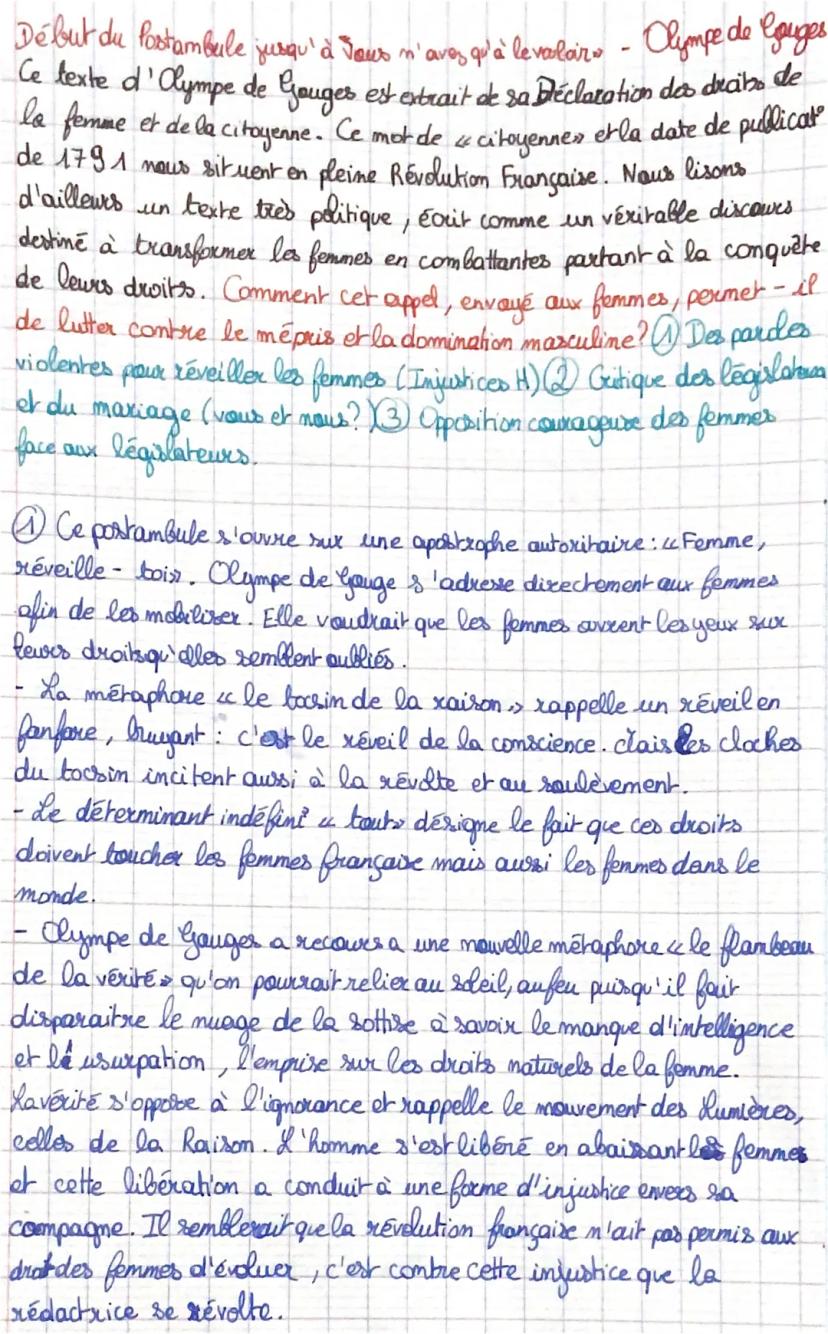 Début du Postambule jusqu'à Vous n'avez qu'à le vouloir» - Olympe de Gouges
Ce texte d'Olympe de Gouges est extrait de sa Déclaration des droits de
la femme et de la citoyenne. Ce mot de « citoyenne» et la date de publicat°
de 1791 nous situent en pleine Révolution Française. Nous lisons
d'ailleurs un texte très politique, écrit comme un véritable discours
destiné à transformer les femmes en combattantes partant à la conquête
de leurs droits. Comment cet appel, envoyé aux femmes, permet-il
de lutter contre le mépris et la domination masculine? ① Des paroles
violentes pour réveiller les femmes (Injustices H) ② Critique des législateurs
et du mariage (vous et nous?) ③ Opposition courageuse des femmes
face aux législateurs.
① Ce postambule s'ouvre sur une apostrophe autoritaire: « Femme,
réveille-toi». Olympe de Gouge s'adresse directement aux femmes
afin de les mobiliser. Elle voudrait que les femmes ouvrent les yeux sur
leurs droits qu'elles semblent oubliés.
- La métaphore « le tocsin de la raison » rappelle un réveil en
fanfare, bruyant : c'est le réveil de la conscience. Mais les cloches
du tocsin incitent aussi à la révolte et au soulèvement.
- Le déterminant indéfini « tout» désigne le fait que ces droits
doivent toucher les femmes française mais aussi les femmes dans le
monde.
- Olympe de Gouges a recours a une nouvelle métaphore « le flambeau
de la vérité» qu'on pourrait relier au soleil, au feu puisqu'il fait
disparaitre le nuage de la sottise à savoir le manque d'intelligence
et l'usurpation, l'emprise sur les droits naturels de la femme.
La vérité s'oppose à l'ignorance et rappelle le mouvement des Lumières,
celles de la Raison. L'homme s'est libéré en abaissant les femmes
et cette libération a conduit à une forme d'injustice envers sa
compagne. Il semblerait que la révolution française n'ait pas permis aux
droit des femmes d'évoluer, c'est contre cette injustice que la
rédactrice se révolte.